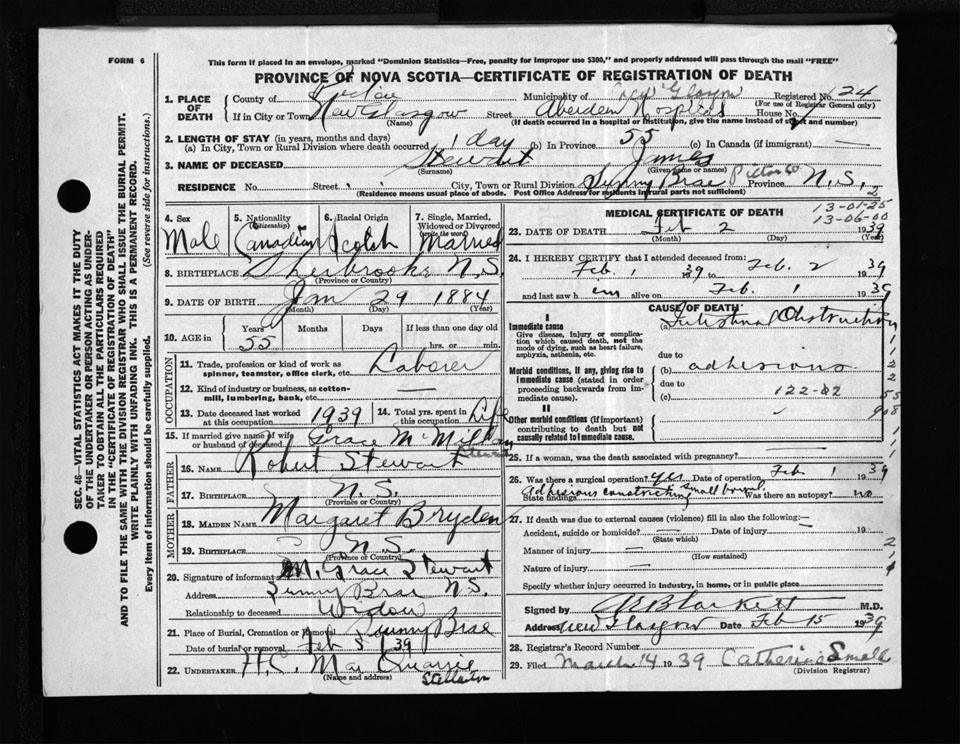 FORM 6
This form if placed in an envelope, marked "Dominion Statistics—Free, penalty for improper use $300," and properly addressed will pass through the mail "FREE"
PROVINCE OF NOVA SCOTIA—CERTIFICATE OF REGISTRATION OF DEATH
1. PLACE OF DEATH
County of Pictou Municipality of New Glasgow Registered No. 24
(For use of Registrar General only)
If in City or Town New Glasgow Street Aberdeen Hospital House No.
(Name) (If death occurred in a hospital or institution, give the name instead of street and number)
2. LENGTH OF STAY (in years, months and days)
(a) In City, Town or Rural Division where death occurred 1 day (b) In Province 55 (c) In Canada (if immigrant) —
3. NAME OF DECEASED Stewart James
(Surname) (Given name or names)
RESIDENCE No. Street City, Town or Rural Division Sunny Brae Pictou Co Province N.S.
(Residence means usual place of abode. Post Office Address for residents in rural parts not sufficient)
SEC. 46—VITAL STATISTICS ACT MAKES IT THE DUTY
OF THE UNDERTAKER OR PERSON ACTING AS UNDER-
TAKER TO OBTAIN ALL THE PARTICULARS REQUIRED
IN THE "CERTIFICATE OF REGISTRATION OF DEATH"
AND TO FILE THE SAME WITH THE DIVISION REGISTRAR WHO SHALL ISSUE THE BURIAL PERMIT.
WRITE PLAINLY WITH UNFADING INK. THIS IS A PERMANENT RECORD.
Every item of information should be carefully supplied. (See reverse side for instructions.)
4. Sex Male
5. Nationality (Citizenship) Canadian
6. Racial Origin Scotch
7. Single, Married, Widowed or Divorced (write the word) Married
8. BIRTHPLACE Sherbrooke N.S.
(Province or Country)
9. DATE OF BIRTH Jan 29 1884
(Month) (Day) (Year)
10. AGE in Years Months Days If less than one day old
55 hrs. or min.
OCCUPATION
11. Trade, profession or kind of work as spinner, teamster, office clerk, etc. Laborer
12. Kind of industry or business, as cotton-mill, lumbering, bank, etc. —
13. Date deceased last worked at this occupation 1939 14. Total yrs. spent in this occupation Life
15. If married give name of wife or husband of deceased Grace McMillan Stewart
FATHER
16. NAME Robert Stewart
17. BIRTHPLACE N.S.
(Province or Country)
MOTHER
18. MAIDEN NAME Margaret Bryden
19. BIRTHPLACE N.S.
(Province or Country)
20. Signature of informant M. Grace Stewart
Address Sunny Brae N.S.
Relationship to deceased Widow
21. Place of Burial, Cremation or Removal Sunny Brae
Date of burial or removal Feb 5 1939
22. UNDERTAKER H.C. MacQuarrie
(Name and address) Stellarton
2
13-01-25
13-06-00
MEDICAL CERTIFICATE OF DEATH
23. DATE OF DEATH Feb 2 1939
(Month) (Day) (Year)
24. I HEREBY CERTIFY that I attended deceased from:
Feb. 1 1939 to Feb. 2 1939
and last saw him alive on Feb. 1 1939
CAUSE OF DEATH
I
Immediate cause
Give disease, injury or complication which caused death, not the mode of dying, such as heart failure, asphyxia, asthenia, etc.
(a) Intestinal Obstruction
due to
Morbid conditions, if any, giving rise to immediate cause (stated in order proceeding backwards from immediate cause)
(b) adhesions
due to
(c) 122-02
II
Other morbid conditions (if important) contributing to death but not causally related to immediate cause
25. If a woman, was the death associated with pregnancy? —
26. Was there a surgical operation? yes Date of operation Feb 1 1939
State findings Adhesions constricting small bowel. Was there an autopsy? no
27. If death was due to external causes (violence) fill in also the following:—
Accident, suicide or homicide? — Date of injury — 19
(State which)
Manner of injury —
(How sustained)
Nature of injury —
Specify whether injury occurred in industry, in home, or in public place
Signed by M.D.
Address New Glasgow Date Feb 15 1939
28. Registrar's Record Number
29. Filed March 14 1939 Catherine Small
(Division Registrar)